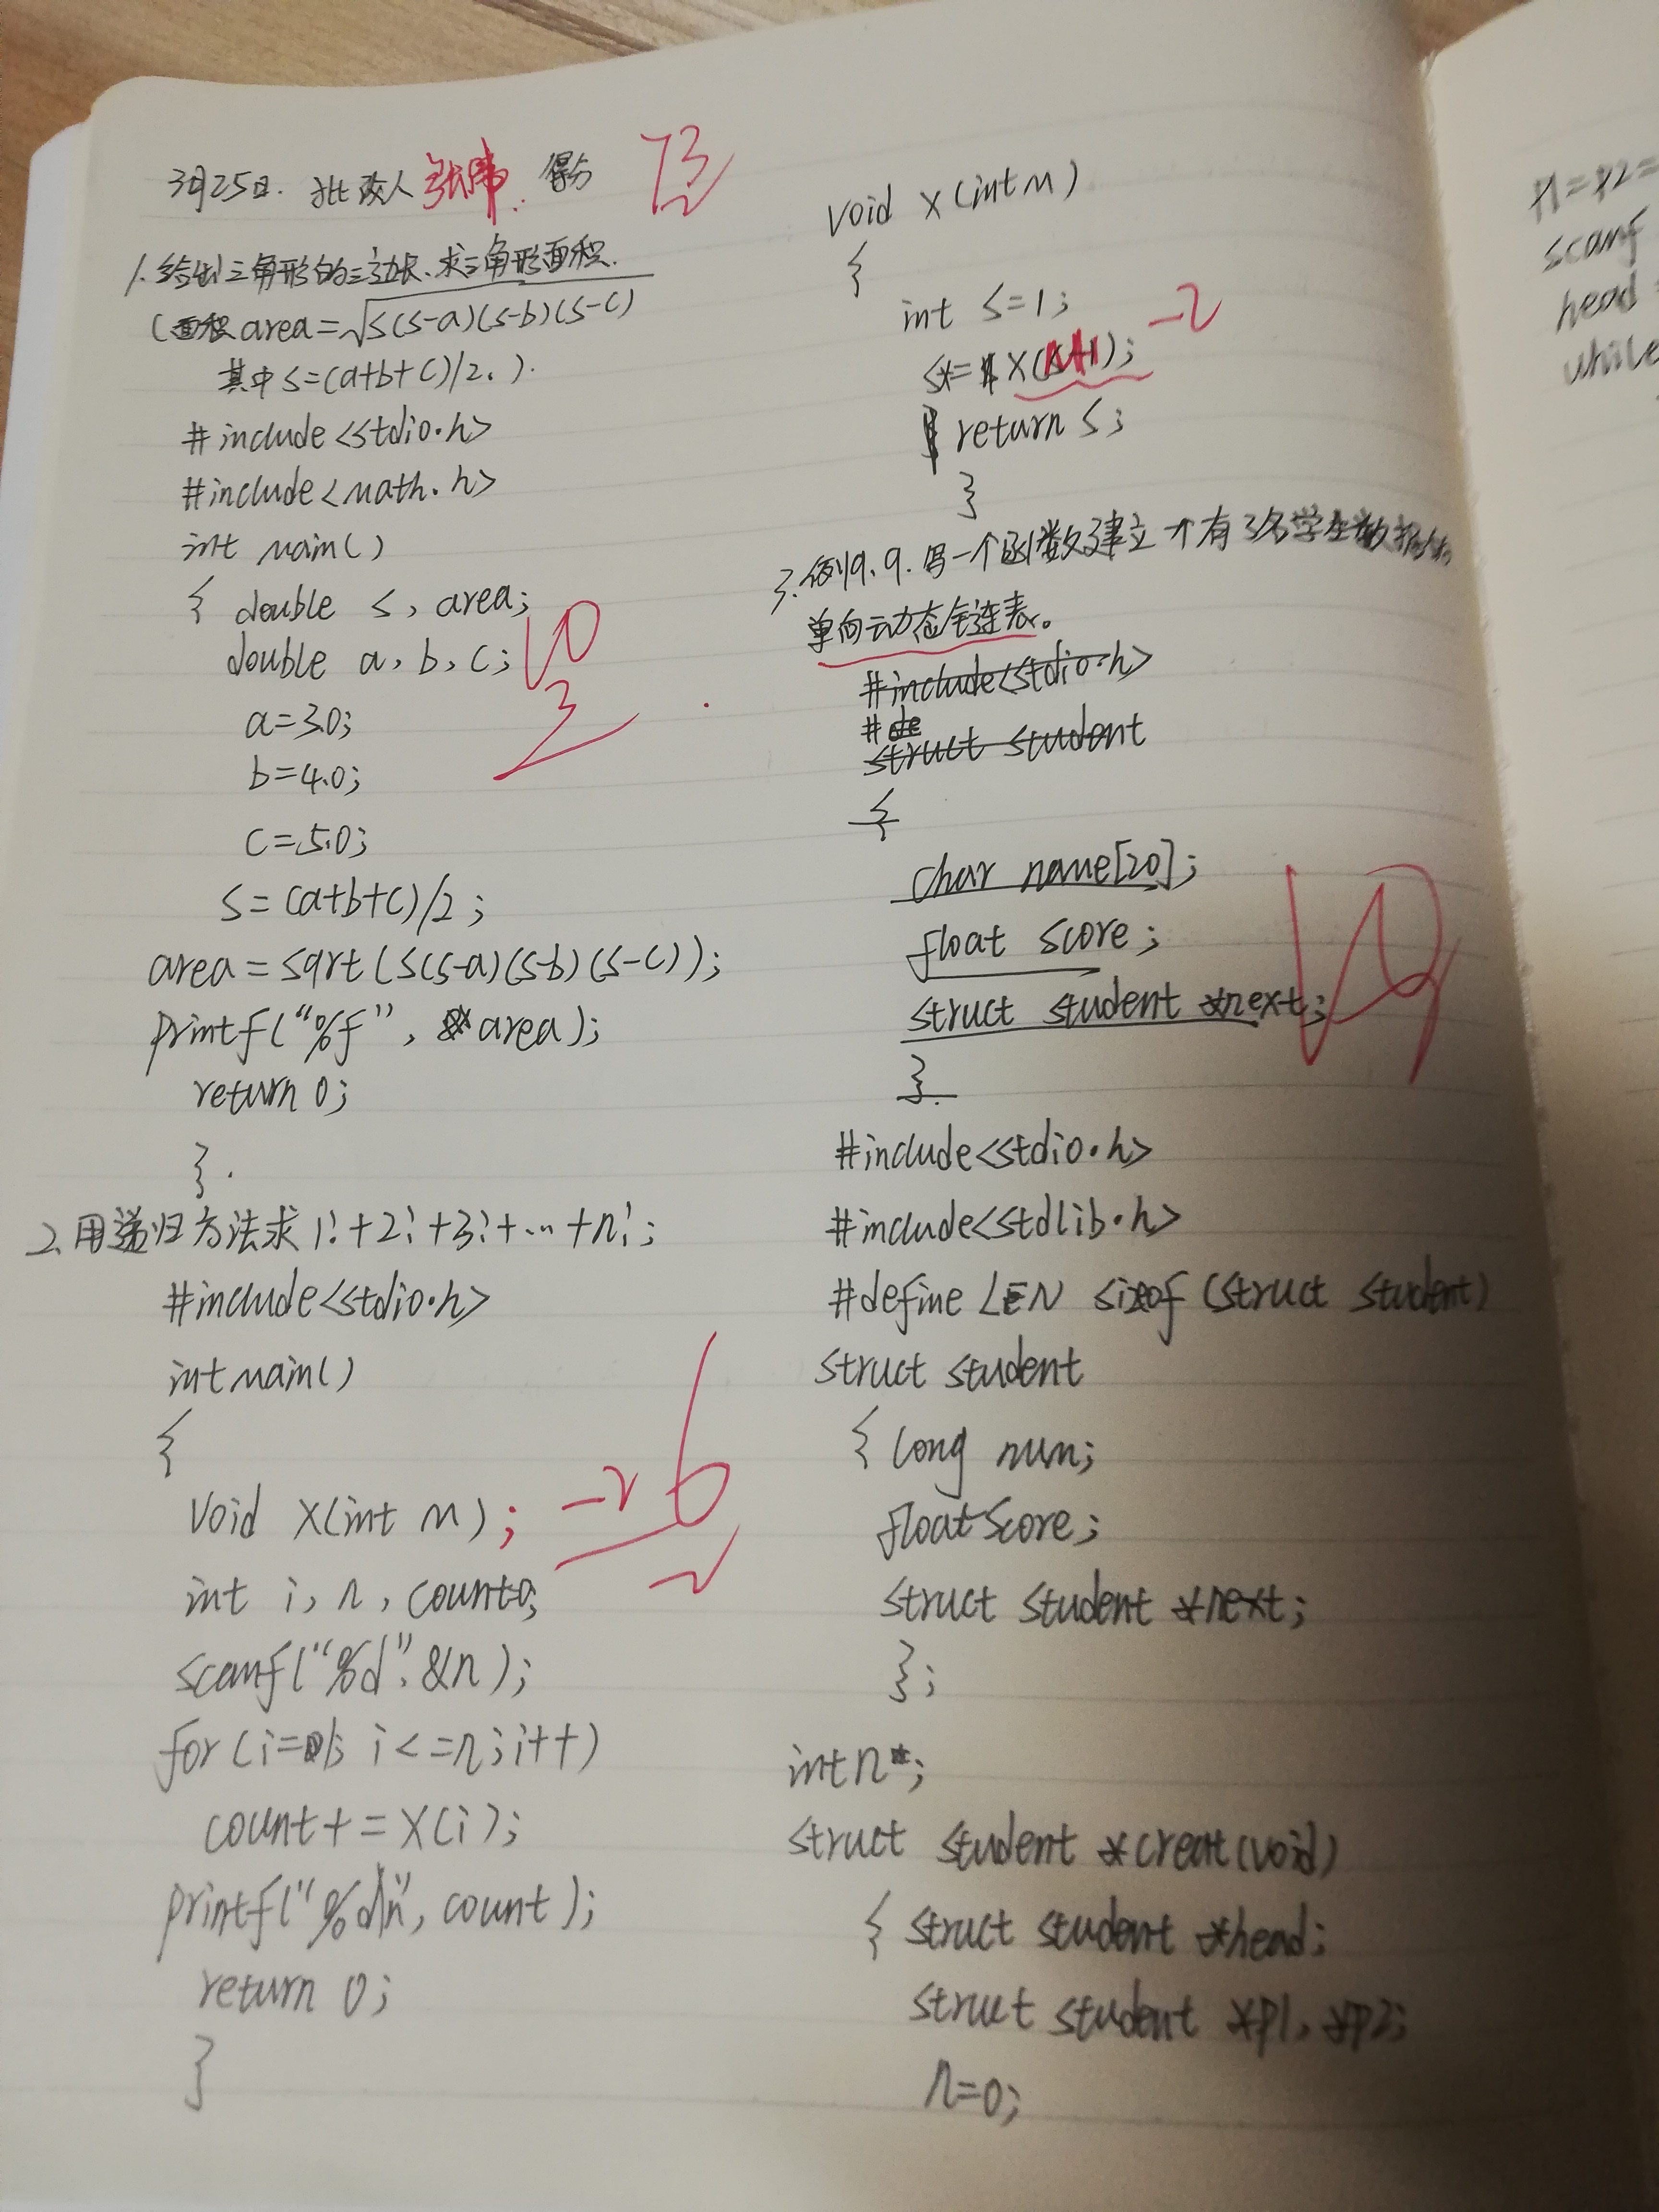 3月25日. 批改人 张玮. 得分 73
1. 给出三角形的三边长、求三角形面积.
(面积area=√s(s-a)(s-b)(s-c)
其中s=(a+b+c)/2.).
#include<stdio.h>
#include<math.h>
int main()
{ double s, area;
double a, b, c;
10
a=3.0;
b=4.0;
c=5.0;
s=(a+b+c)/2;
area=sqrt(s(s-a)(s-b)(s-c));
printf("%f", area);
return 0;
}.
2. 用递归方法求1!+2!+3!+…+n!;
#include<stdio.h>
int main()
{
void x(int n); -2 6
int i, n, count=0;
scanf("%d",&n);
for(i=1; i<=n; i++)
count+=x(i);
printf("%d\n", count);
return 0;
}
void x(int n)
{
int s=1;
s*=x(n-1); -2
return s;
}
3. 例9.9. 写一个函数建立一个有3名学生数据的
单向动态链表。
#include<stdio.h>
#de
struct student
{
char name[20];
float score;
struct student *next;
}.
#include<stdio.h>
#include<stdlib.h>
#define LEN sizeof(struct student)
struct student
{ long num;
float score;
struct student *next;
};
int n;
struct student *creat(void)
{ struct student *head;
struct student *p1, *p2;
n=0;
p1=p2=
scanf
head
while